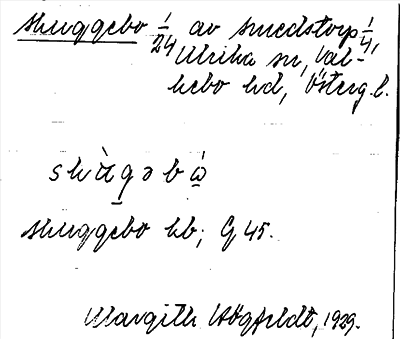 Skuggebo 1/24 av Smedstorp 1/4,
Ulrika sn, Val-
kebo hd, Österg.l.
skùgəbò
Skuggebo hb; G 45.
Margith Högfeldt, 1929.